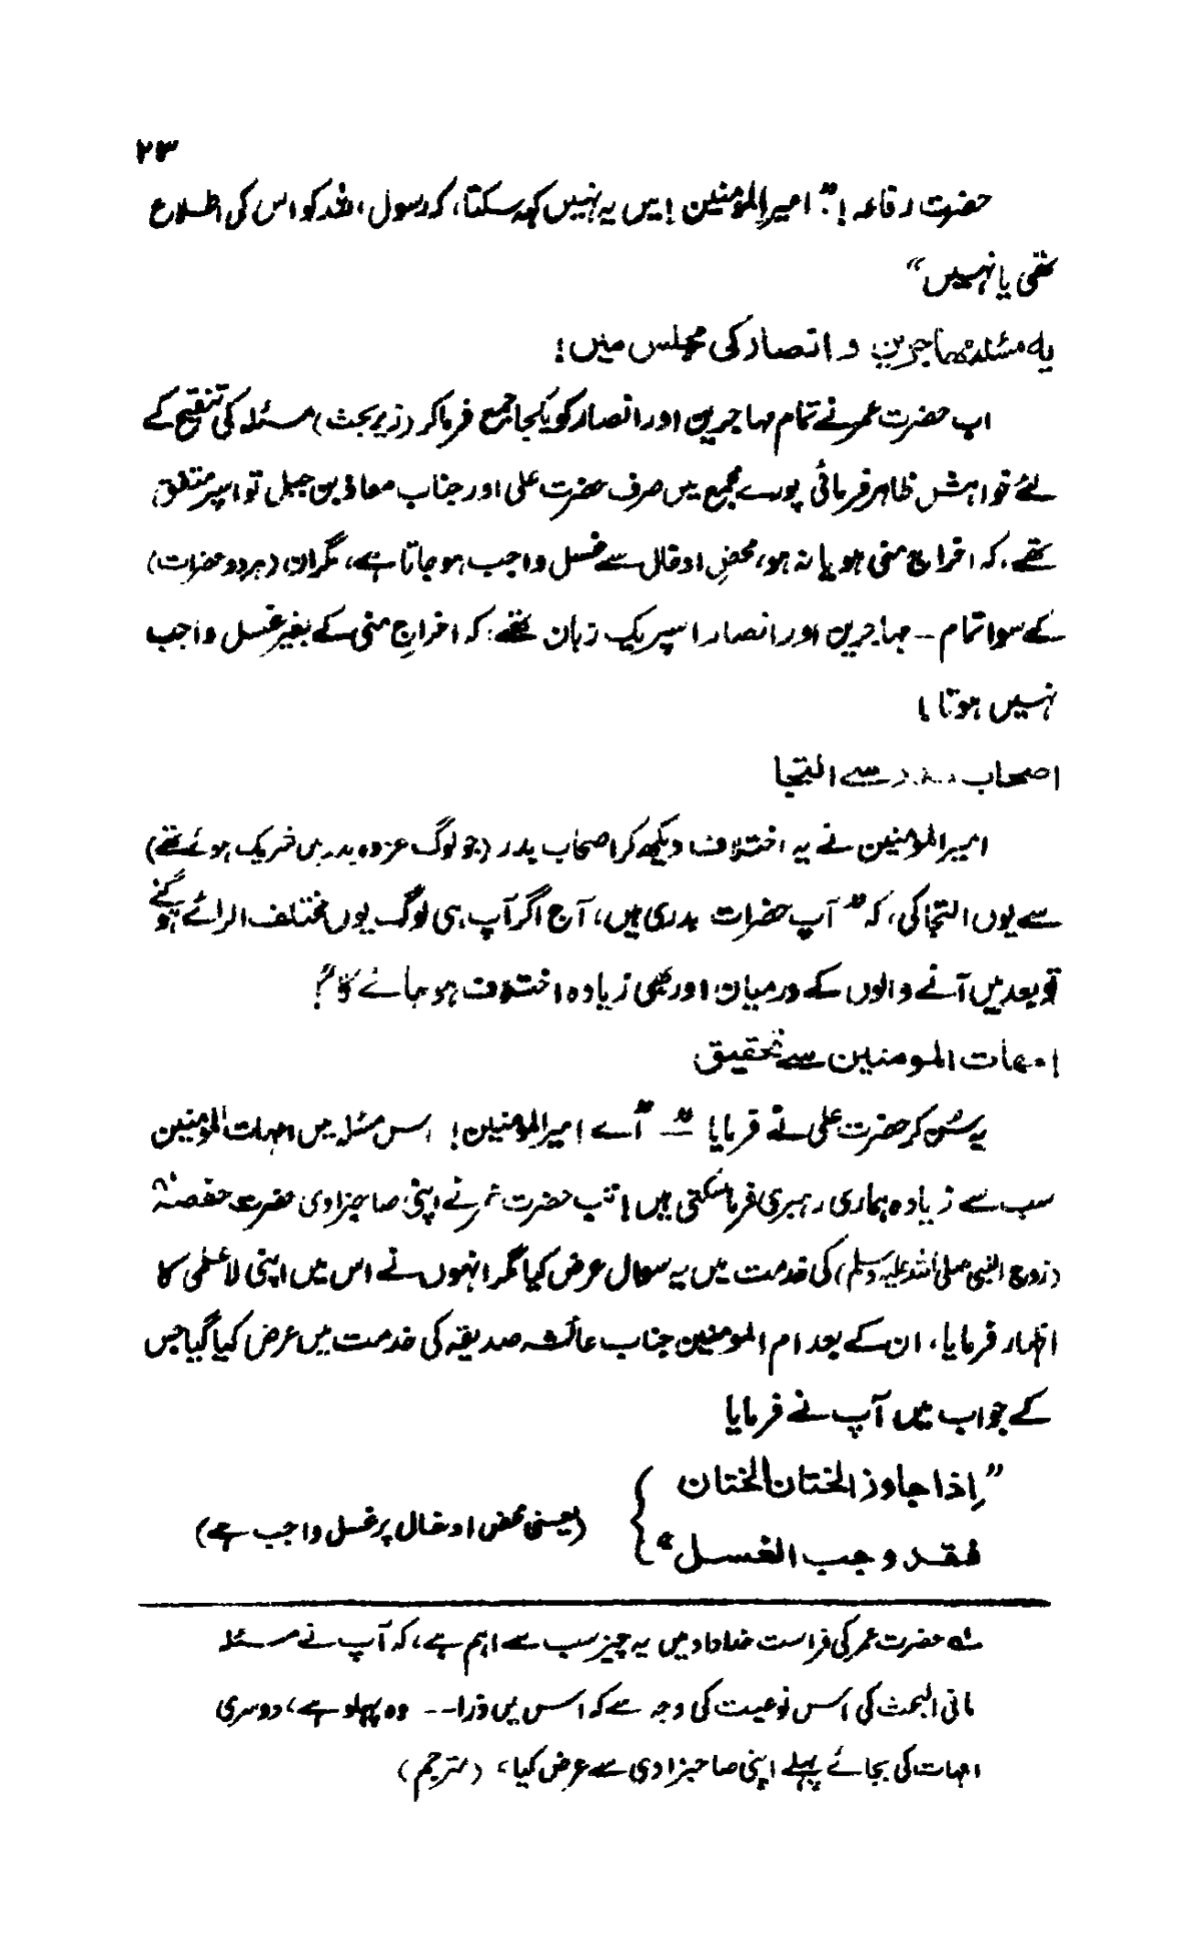 ۲۳
حضرت رفاعہ! ”امیر المؤمنین! میں یہ نہیں کہہ سکتا، کہ رسول اللہ کو اس کی اطلاع
تھی یا نہیں“
یہ مسئلہ مہاجرین و انصار کی مجلس میں!
اب حضرت عمر نے تمام مہاجرین اور انصار کو یکجا جمع فرما کر (زیر بحث) مسئلہ کی تنقیح کے
لئے خواہش ظاہر فرمائی پورے مجمع میں صرف حضرت علی اور جناب معاذ بن جبل تو اسپر متفق
تھے، کہ اخراج منی ہو یا نہ ہو، محض ادخال سے غسل واجب ہو جاتا ہے، مگر ان (ہر دو حضرات)
کے سوا تمام - مہاجرین اور انصار اسپر یک زبان تھے: کہ اخراج منی کے بغیر غسل واجب
نہیں ہوتا!
اصحاب بدر سے التجا
امیر المؤمنین نے یہ اختلاف دیکھ کر اصحاب بدر (جو لوگ غزوہ بدر میں شریک ہوئے تھے)
سے یوں التجا کی، کہ ”آپ حضرات بدری ہیں، آج اگر آپ ہی لوگ یوں مختلف الرائے ہو گئے
تو بعد میں آنے والوں کے درمیان اور بھی زیادہ اختلاف ہو جائے گا“؟
امہات المومنین سے تحقیق
یہ سُن کر حضرت علی نے فرمایا – ”اے امیر المؤمنین! اس مسئلہ میں امہات المؤمنین
سب سے زیادہ ہماری رہبری فرما سکتی ہیں! تب حضرت عمر نے اپنی صاحبزادی حضرت حفصہ
(زوج النبی صلی اللہ علیہ وسلم) کی خدمت میں یہ سوال عرض کیا مگر انہوں نے اس میں اپنی لاعلمی کا
اظہار فرمایا، ان کے بعد ام المومنین جناب عائشہ صدیقہ کی خدمت میں عرض کیا گیا جس
کے جواب میں آپ نے فرمایا
”إذا جاوز الختان الختان
فقد وجب الغسل“ } (یعنی محض ادخال پر غسل واجب ہے)
حضرت عمر کی فراست خداداد میں یہ چیز سب سے اہم ہے، کہ آپ نے مسئلہ
مافی البحث کی اس نوعیت کی وجہ سے کہ اس میں ذرا -- وہ پہلو ہے، دوسری
امہات کی بجائے پہلے اپنی صاحبزادی سے عرض کیا، (مترجم)